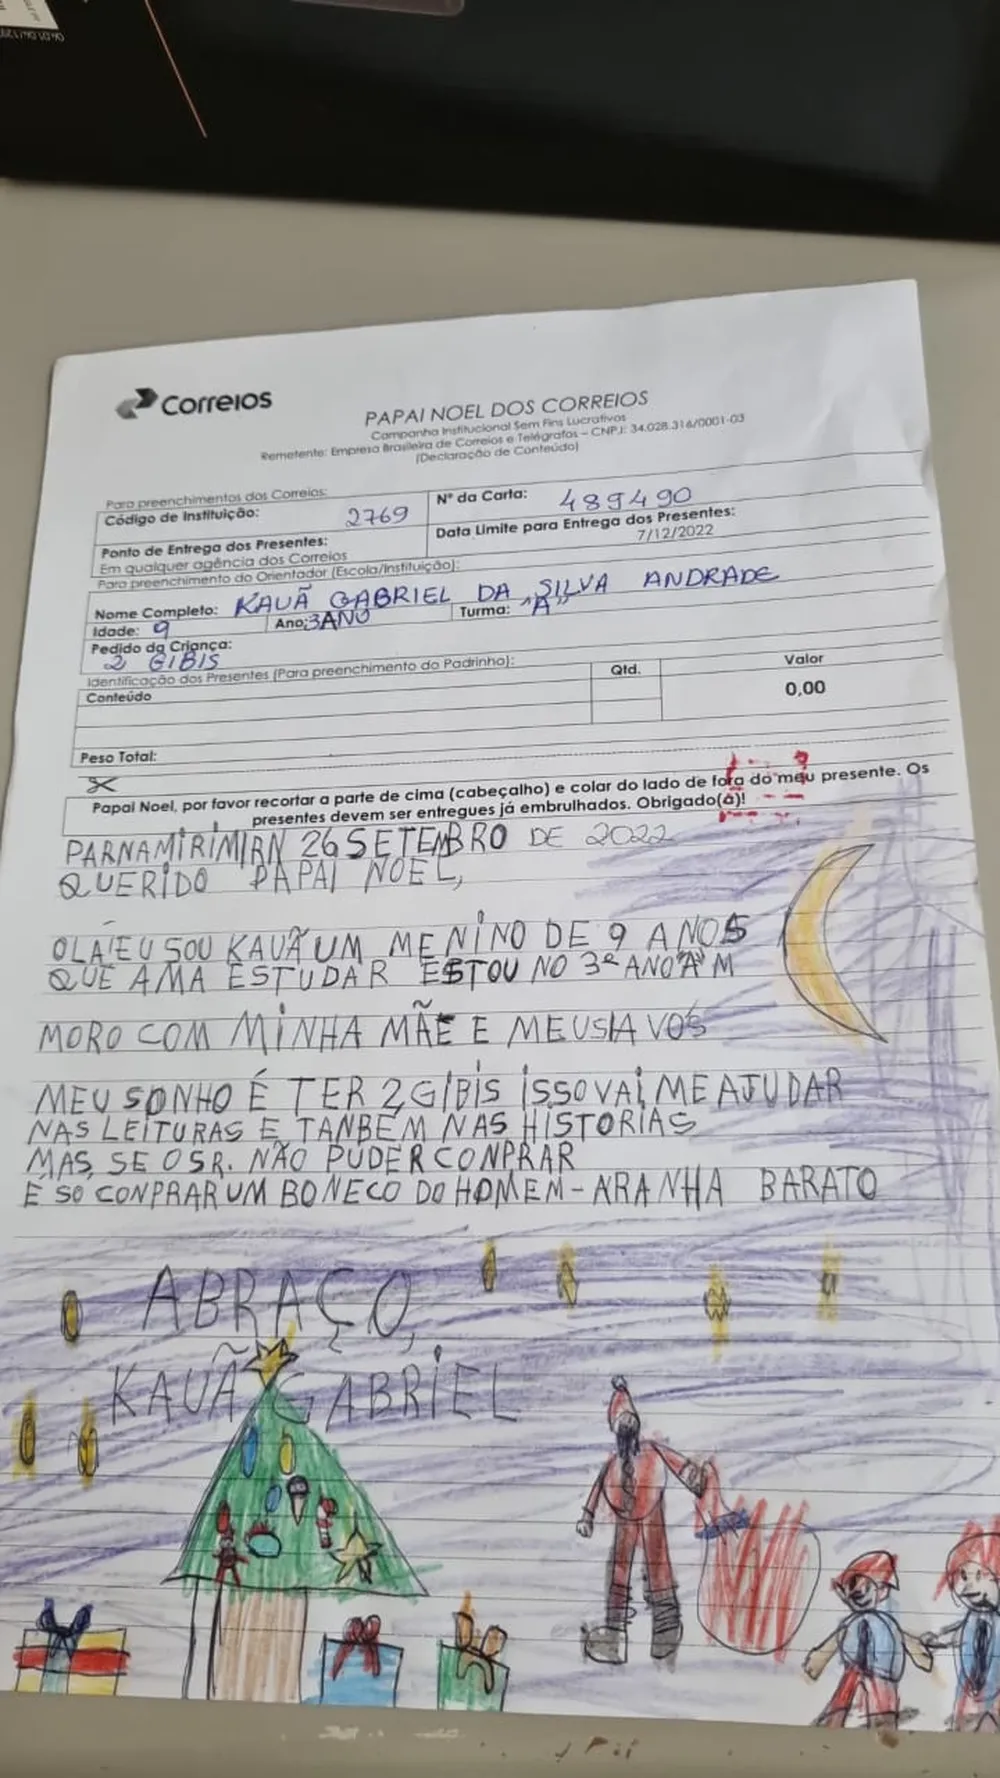 Correios
PAPAI NOEL DOS CORREIOS
Campanha Institucional Sem Fins Lucrativos
Remetente: Empresa Brasileira de Correios e Telégrafos – CNPJ: 34.028.316/0001-03
(Declaração de Conteúdo)
Para preenchimentos dos Correios:
Código de Instituição: 2769
Nº da Carta: 489490
Ponto de Entrega dos Presentes:
Em qualquer agência dos Correios
Data Limite para Entrega dos Presentes:
7/12/2022
Para preenchimento do Orientador (Escola/Instituição):
Nome Completo: KAUÃ GABRIEL DA SILVA ANDRADE
Idade: 9 Ano: 3ANO Turma: "A"
Pedido da Criança:
2 GIBIS
Identificação dos Presentes (Para preenchimento do Padrinho):
Conteúdo Qtd. Valor
0,00
Peso Total:
Papai Noel, por favor recortar a parte de cima (cabeçalho) e colar do lado de fora do meu presente. Os
presentes devem ser entregues já embrulhados. Obrigado(a)!
PARNAMIRIMIRN 26 SETEMBRO DE 2022
QUERIDO PAPAI NOEL,
OLÁ EU SOU KAUÃ UM MENINO DE 9 ANOS
QUE AMA ESTUDAR ESTOU NO 3º ANO "A" M
MORO COM MINHA MÃE E MEUSIAVÓS
MEU SONHO É TER 2 GIBIS ISSO VAI ME AJUDAR
NAS LEITURAS E TANBÉM NAS HISTORIAS
MAS, SE O SR. NÃO PUDER CONPRAR
É SO CONPRAR UM BONECO DO HOMEM-ARANHA BARATO
ABRAÇO,
KAUÃ GABRIEL